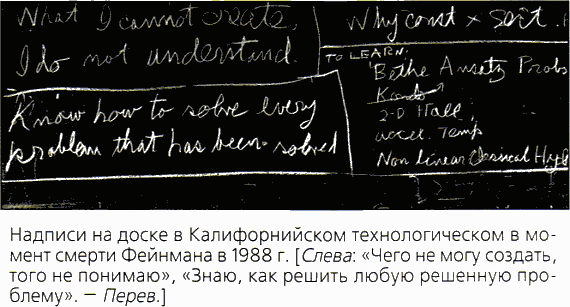 What I cannot create,
I do not understand.
Know how to solve every
problem that has been solved
Why const × sort .
TO LEARN:
Bethe Ansatz Probs
Kondo
2-D Hall
accel. Temp
Non linear Classical Hydro
Надписи на доске в Калифорнийском технологическом в мо-
мент смерти Фейнмана в 1988 г. [Слева: «Чего не могу создать,
того не понимаю», «Знаю, как решить любую решенную про-
блему». — Перев.]